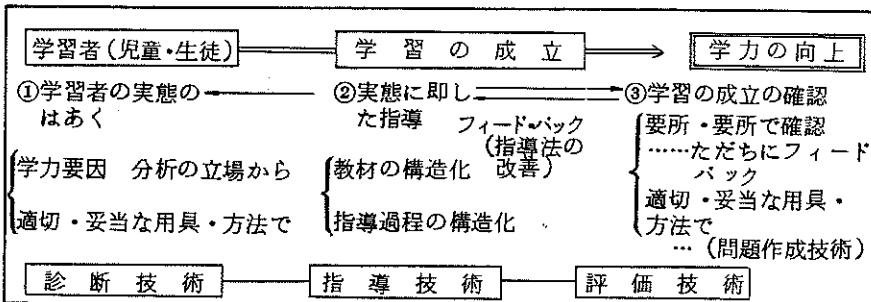 学習者(児童・生徒)
学習の成立
学力の向上
①学習者の実態の
はあく
②実態に即し
た指導
フィード・バック
(指導法の
改善)
③学習の成立の確認
学力要因 分析の立場から
適切・妥当な用具・方法で
教材の構造化
指導過程の構造化
要所・要所で確認
……ただちにフィード
バック
適切・妥当な用具・
方法で
…(問題作成技術)
診断技術
指導技術
評価技術